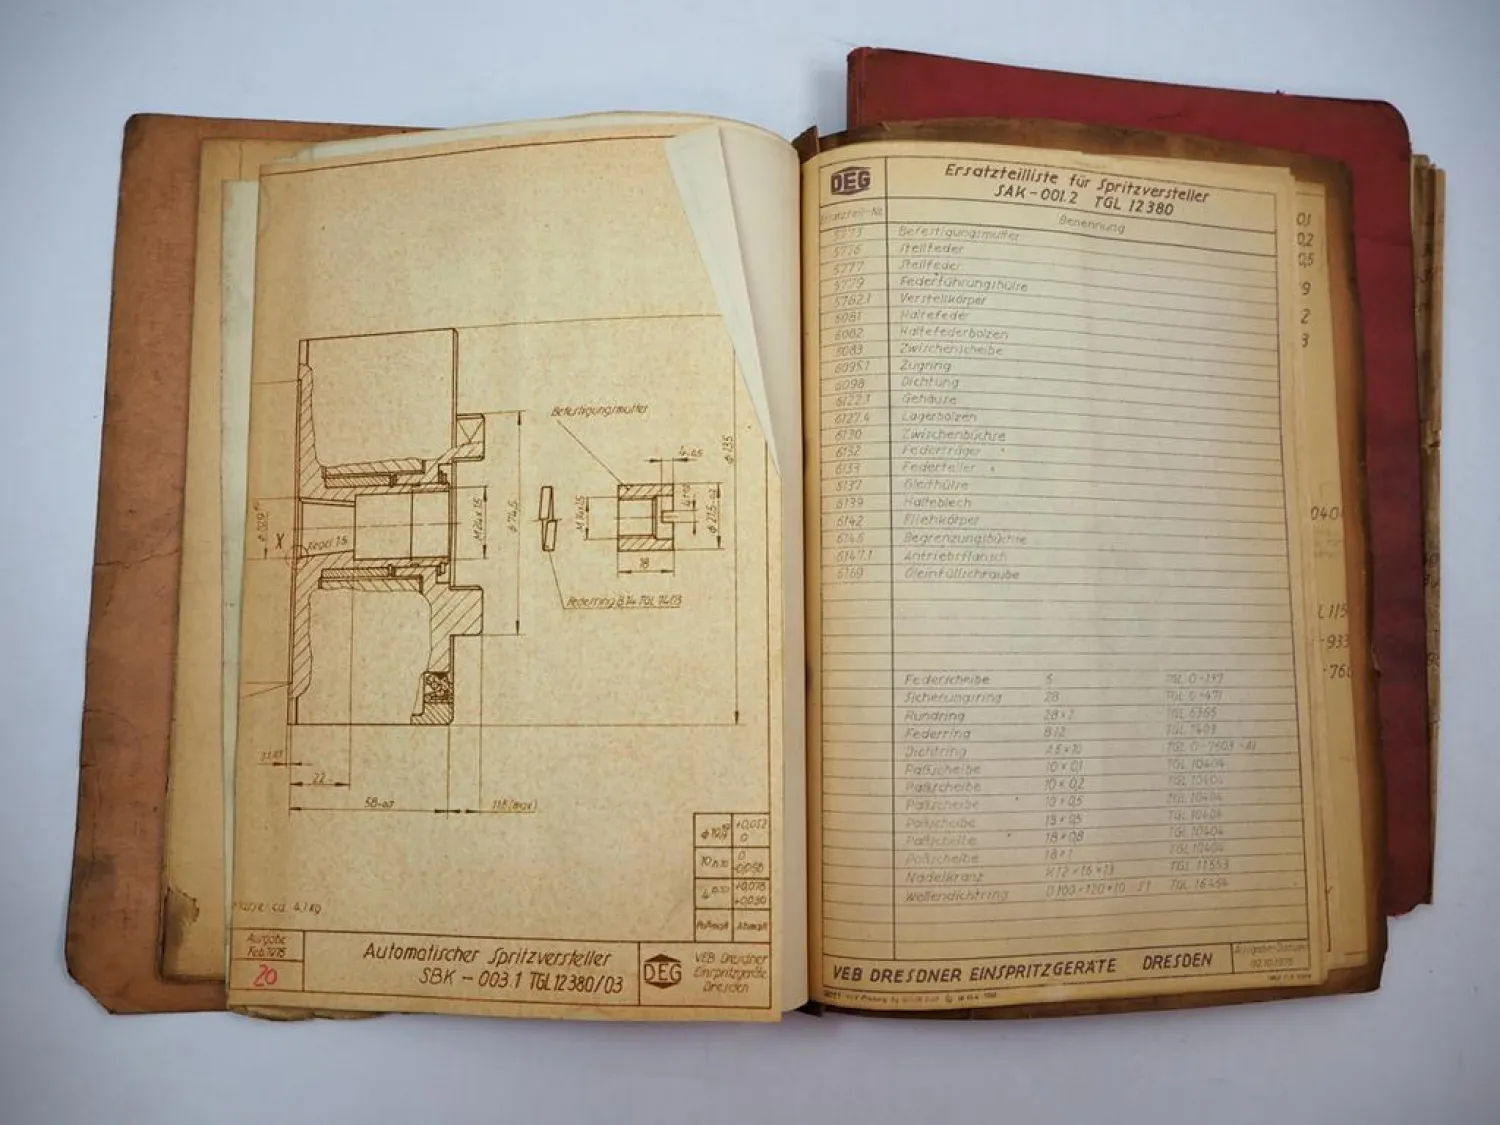 Befestigungsmutter
4
ϕ 135
M 24x1,5
ϕ 74,5
M 14x1,5
X
Kegel 1:5
18
Federring B 14 TGL 7403
22
58
11,8 (max)
+0,012
0
10 h
0
Paßmaß
Abmaß
Masse ca. 4,1 kg
Ausgabe
Feb. 1975
20
Automatischer Spritzversteller
SBK – 003.1 TGL 12380/03
DEG
VEB Dresdner
Einspritzgeräte
Dresden
DEG
Ersatzteilliste für Spritzversteller
SAK – 001.2 TGL 12380
Ersatzteil-Nr.
Benennung
Befestigungsmutter
5776 Stellfeder
5777 Stellfeder
5779 Federführungshülse
5782.1 Verstellkörper
6081 Haltefeder
6082 Haltefederbolzen
6083 Zwischenscheibe
6095.1 Zugring
6098 Dichtung
6122.1 Gehäuse
6127.4 Lagerbolzen
6130 Zwischenbüchse
6132 Federträger
6133 Federteller
6137 Gleithülse
6139 Halteblech
6142 Fliehkörper
6146 Begrenzungsbüchse
6147.1 Antriebsflansch
6169 Öleinfüllschraube
Federscheibe
Sicherungsring 28 TGL 0-471
Rundring 28×2 TGL 6365
Federring B 12 TGL 7403
Dichtring A 8×10 TGL 0-7603-Al
Paßscheibe 10×0,1 TGL 10404
Paßscheibe 10×0,2 TGL 10404
Paßscheibe 10×0,5 TGL 10404
Paßscheibe 18×0,5 TGL 10404
Paßscheibe 18×0,8 TGL 10404
Paßscheibe 18×1 TGL 10404
Nadelkranz K 12×16×13 TGL 11553
Wellendichtring D 100×120×10 TGL 16454
VEB DRESDNER EINSPRITZGERÄTE DRESDEN
Ausgabe-Datum
02.10.1975
0,1
0,2
0,5
9
2
3